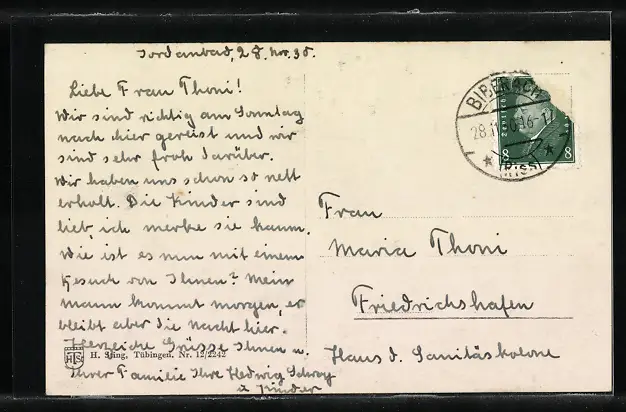 Jordanbad, 28. Nov. 30.
Liebe Frau Thoni!
Wir sind richtig am Sonntag
nach hier gereist und wir
sind sehr froh darüber.
Wir haben uns schon so nett
erholt. Die Kinder sind
lieb, ich merke sie kaum.
Wie ist es nun mit einem
Besuch von Ihnen? Mein
Mann kommt morgen, er
bleibt aber die Nacht hier.
Herzliche Grüsse Ihnen u.
Ihrer Familie Ihre Hedwig
u Kinder
HTS
H. Sting, Tübingen. Nr. 12/2242
BIBERACH
28.11.30.16-17
(RISS)
8
8
Frau
Maria Thoni
Friedrichshafen
Haus d. Sanitäskolone